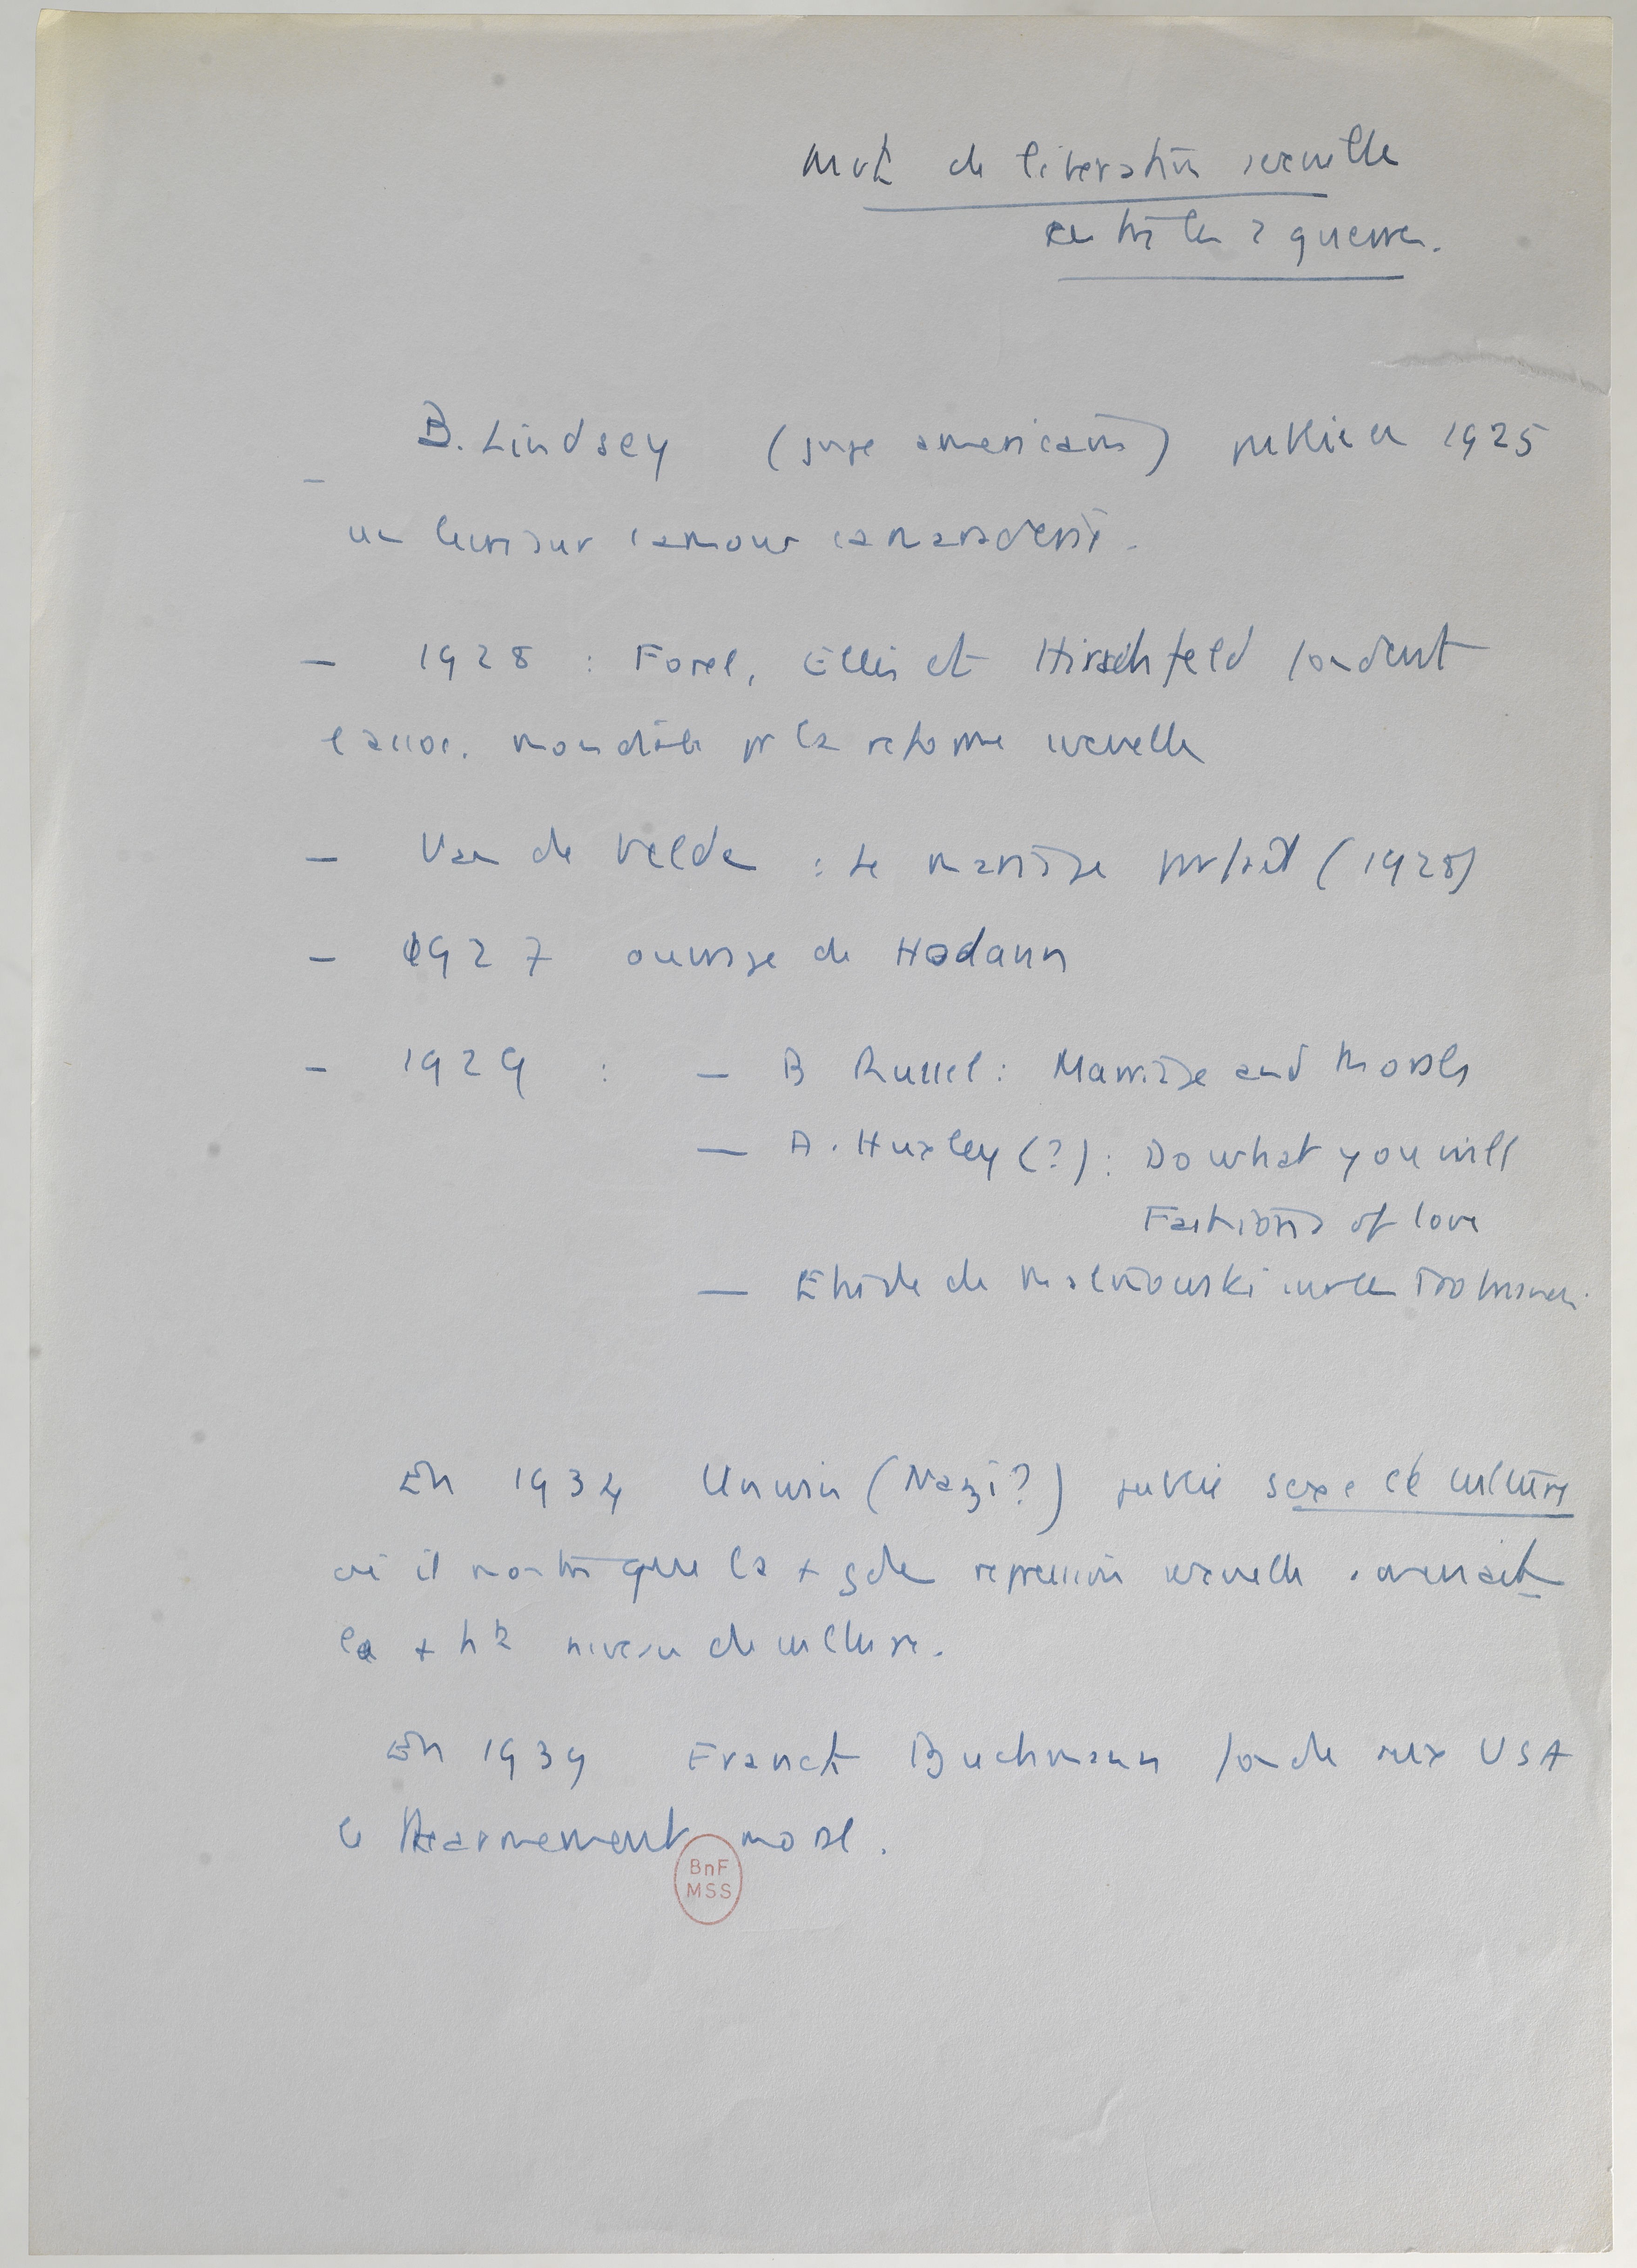 Mvt de liberation sexuelle
entre les 2 guerres.
- B. Lindsey (juge americain) publie en 1925
un livre sur l'amour camaraderie.
- 1928 : Forel, Ellis et Hirschfeld fondent
l'assoc. mondiale pr la reforme sexuelle
- Van de Velde : Le mariage parfait (1928)
- 1927 ouvrage de Hodann
- 1929 : - B Russel : Marriage and Morals
- A. Huxley (?) : Do what you will
Fashions of love
- Etude de Malinowski sur les Trobriandais.
En 1934 Unwin (Nazi ?) publie sexe et culture
où il montre que la + gde repression sexuelle amenait
le + ht niveau de culture.
En 1939 Franck Buchmann fonde aux USA
le Rearmement moral.
BnF
MSS